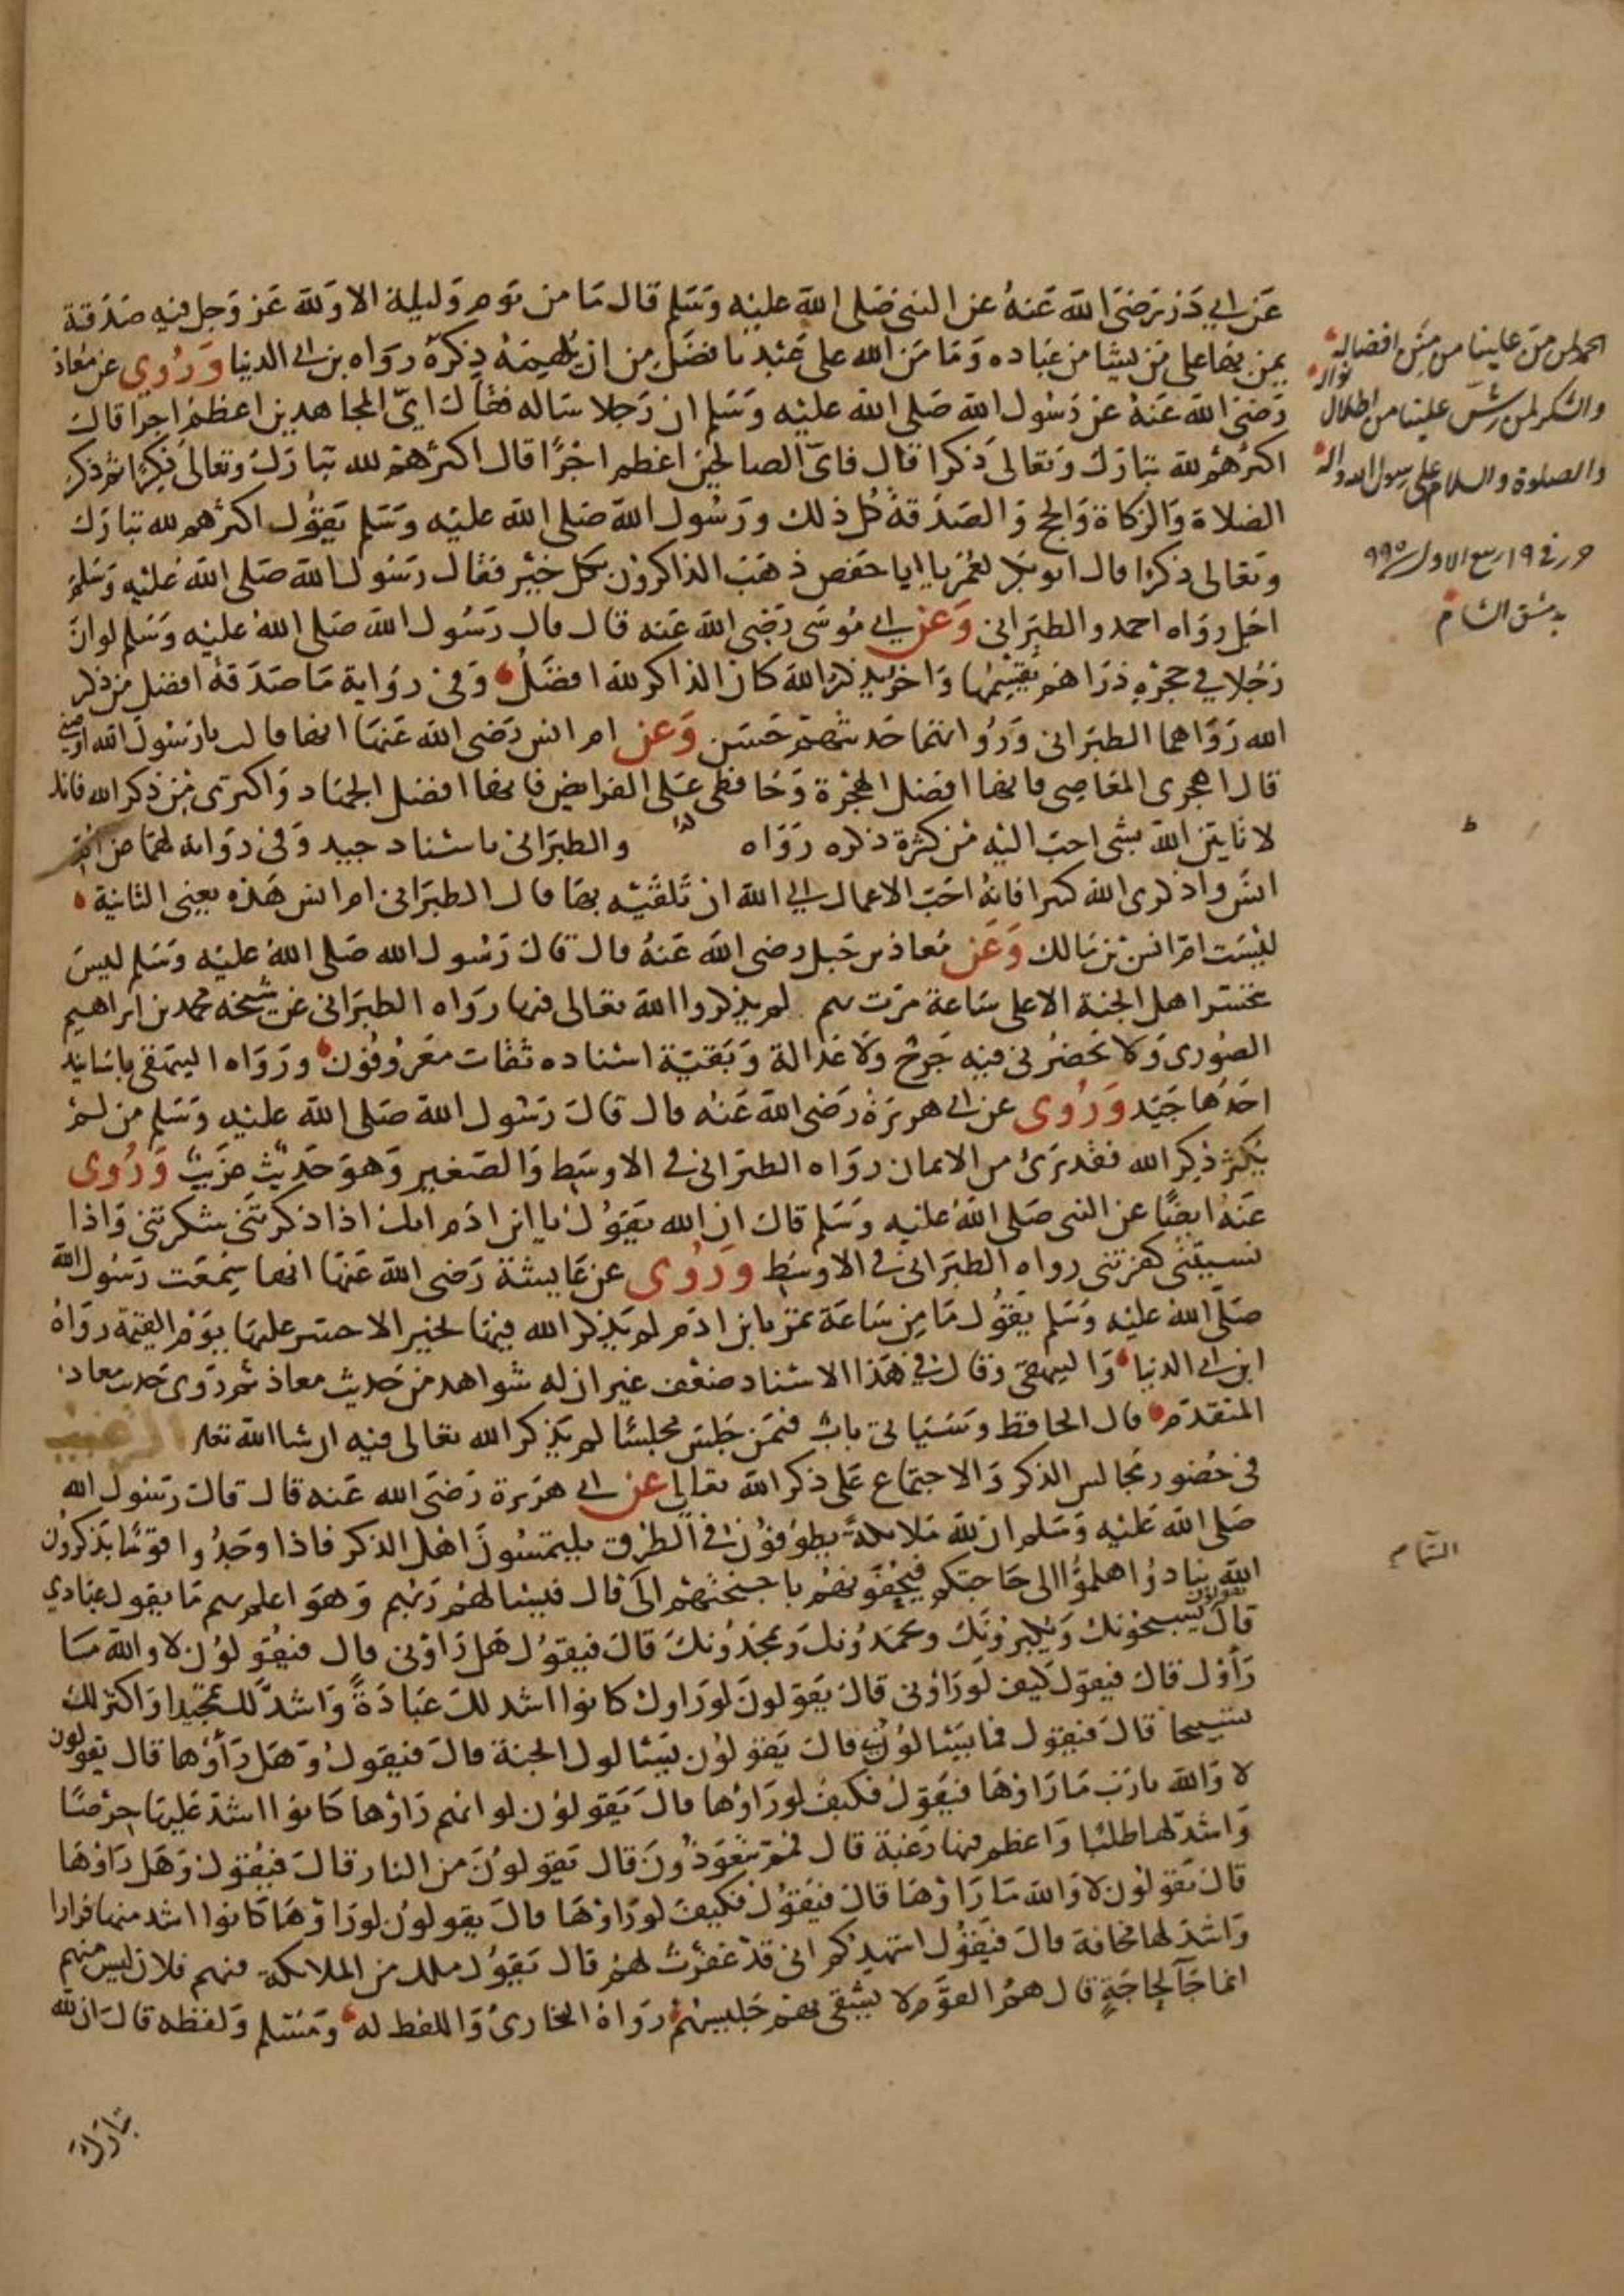 عن ابي ذر رضي الله عنه عن النبي صلى الله عليه وسلم قال ما من يوم وليلة الا ولله عز وجل فيه صدقة
يمن بها على من يشا من عباده وما من الله على عبد بافضل من ان يلهمه ذكره رواه بن ابي الدنيا وروي عن معاذ
رضي الله عنه عن رسول الله صلى الله عليه وسلم ان رجلا ساله فقال اي المجاهدين اعظم اجرا قال
اكثرهم لله تبارك وتعالى ذكرا قال فاي الصالحين اعظم اجرا قال اكثرهم لله تبارك وتعالى ذكرا ثم ذكر
الصلاة والزكاة والحج والصدقة كل ذلك ورسول الله صلى الله عليه وسلم يقول اكثرهم لله تبارك
وتعالى ذكرا قال ابو بكر لعمر يا ابا حفص ذهب الذاكرون بكل خير فقال رسول الله صلى الله عليه وسلم
اجل رواه احمد والطبراني وعن ابي موسى رضي الله عنه قال قال رسول الله صلى الله عليه وسلم لو ان
رجلا في حجره دراهم يقسمها واخر يذكر الله كان الذاكر لله افضل وفي رواية ما صدقة افضل من ذكر
الله رواهما الطبراني ورواتهما حديثهم حسن وعن ام انس رضي الله عنها انها قالت يا رسول الله اوصني
قال اهجري المعاصي فانها افضل الهجرة وحافظي على الفرايض فانها افضل الجهاد واكثري من ذكر الله فانك
لا تاتين الله بشي احب اليه من كثرة ذكره رواه والطبراني باسناد جيد وفي رواية لهما عن ام
انس واذكري الله كثيرا فانه احب الاعمال الى الله ان تلقيه بها قال الطبراني ام انس هذه يعني الثانية
ليست ام انس بن مالك وعن معاذ بن جبل رضي الله عنه قال قال رسول الله صلى الله عليه وسلم ليس
يتحسر اهل الجنة الا على ساعة مرت بهم لم يذكروا الله تعالى فيها رواه الطبراني عن شيخه محمد بن ابراهيم
الصوري ولا يحضرني فيه جرح ولا عدالة وبقية اسناده ثقات معروفون ورواه البيهقي باسانيد
احدها جيد وروي عن ابي هريرة رضي الله عنه قال قال رسول الله صلى الله عليه وسلم من لم
يكثر ذكر الله فقد برئ من الايمان رواه الطبراني في الاوسط والصغير وهو حديث غريب وروي
عنه ايضا عن النبي صلى الله عليه وسلم قال ان الله يقول يا ابن ادم انك اذا ذكرتني شكرتني واذا
نسيتني كفرتني رواه الطبراني في الاوسط وروي عن عايشة رضي الله عنها انها سمعت رسول الله
صلى الله عليه وسلم يقول ما من ساعة تمر بابن ادم لم يذكر الله فيها بخير الا حسر عليها يوم القيمة رواه
ابن ابي الدنيا والبيهقي وقال في هذا الاسناد ضعف غير ان له شواهد من حديث معاذ ثم روى حديث معاذ
المتقدم قال الحافظ وسياتي باب فيمن جلس مجلسا لم يذكر الله تعالى فيه ان شا الله تعالى الترغيب
في حضور مجالس الذكر والاجتماع على ذكر الله تعالى عن ابي هريرة رضي الله عنه قال قال رسول الله
صلى الله عليه وسلم ان لله ملائكة يطوفون في الطرق يلتمسون اهل الذكر فاذا وجدوا قوما يذكرون
الله تنادوا هلموا الى حاجتكم فيحفونهم باجنحتهم الى قال فيسالهم ربهم وهو اعلم بهم ما يقول عبادي
قال يقولون يسبحونك ويكبرونك ويحمدونك ويمجدونك قال فيقول هل راوني قال فيقولون لا والله ما
راوك قال فيقول كيف لو راوني قال يقولون لو راوك كانوا اشد لك عبادة واشد لك تمجيدا واكثر لك
تسبيحا قال فيقول فما يسالوني قال يقولون يسالونك الجنة قال فيقول وهل راوها قال يقولون
لا والله يا رب ما راوها فيقول فكيف لو راوها قال يقولون لو انهم راوها كانوا اشد عليها حرصا
واشد لها طلبا واعظم فيها رغبة قال فمم يتعوذون قال يقولون من النار قال فيقول وهل راوها
قال يقولون لا والله ما راوها قال فيقول فكيف لو راوها قال يقولون لو راوها كانوا اشد منها فرارا
واشد لها مخافة قال فيقول اشهدكم اني قد غفرت لهم قال يقول ملك من الملائكة فيهم فلان ليس منهم
انما جآ لحاجة قال هم القوم لا يشقى بهم جليسهم رواه البخاري واللفظ له ومسلم ولفظه قال ان لله
تبارك
الحمد لمن من علينا من منن افضاله
والشكر لمن رش علينا من اطلال نواله
والصلوة والسلام على رسول الله واله
حرر في ١٩ ربيع الاول ٩٩٥
بدمشق الشام
ط
السماء